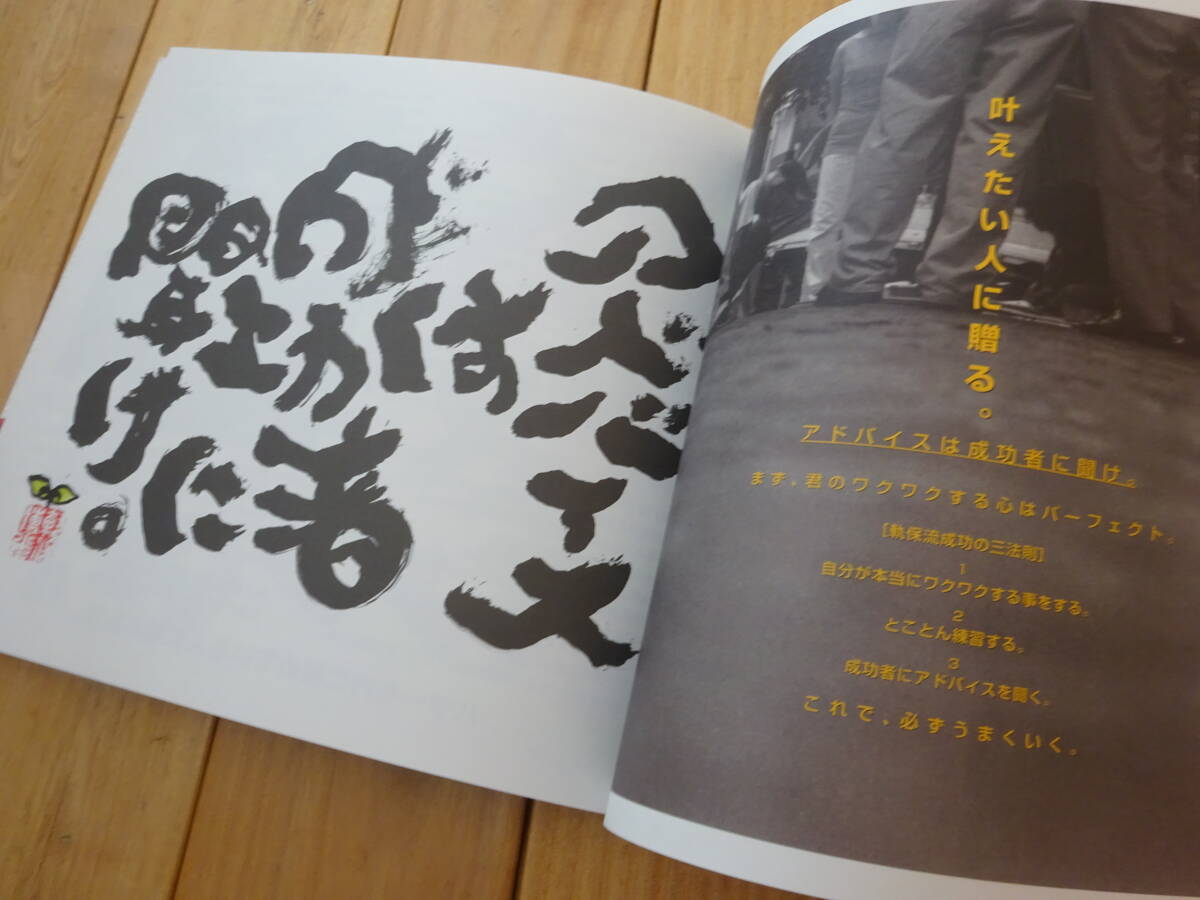 アドバイス
は
成功者に
聞け。
叶えたい人に贈る。
アドバイスは成功者に聞け。
まず、君のワクワクする心はパーフェクト。
[軌保流成功の三法則]
1
自分が本当にワクワクする事をする。
2
とことん練習する。
3
成功者にアドバイスを聞く。
これで、必ずうまくいく。